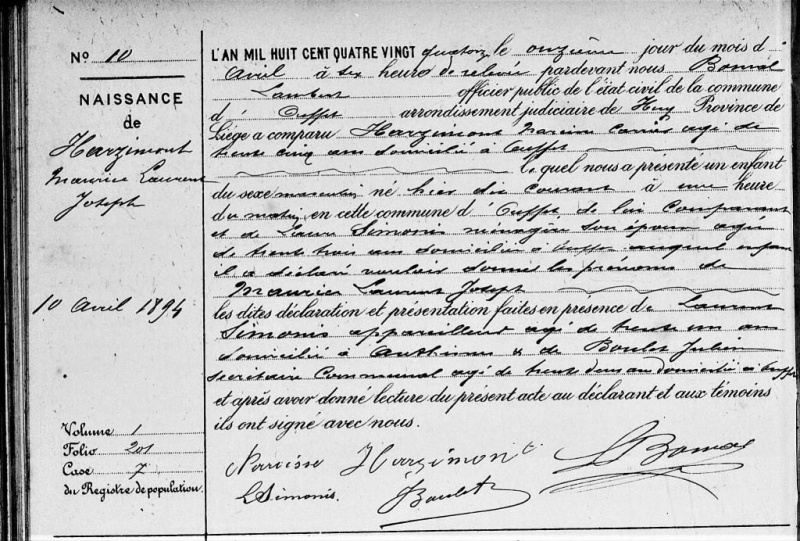 N° 10
NAISSANCE
de
Harzimont
Maurice Laurent
Joseph
10 Avril 1894
Volume 1
Folio 201
Case 7
du Registre de population.
L'AN MIL HUIT CENT QUATRE VINGT quatorze le onzième jour du mois d
Avril à six heure de relevée pardevant nous Bomal
Lambert officier public de l'état civil de la commune
d' Ouffet arrondissement judiciaire de Huy Province de
Liége a comparu Harzimont Narcisse carrier agé de
trente cinq ans domicilié à Ouffet
Lequel nous a présenté un enfant
du sexe masculin né hier dix courant à une heure
du matin en cette commune d Ouffet de lui comparant
et de Laure Simonis ménagère son épouse agée
de trente trois ans domiciliée à Ouffet auquel enfant
il a déclaré vouloir donner les prénoms de
Maurice Laurent Joseph
les dites déclaration et présentation faites en présence de Laurent
Simonis appareilleur agé de trente un ans
domicilié à Anthisnes & de Boulet Julien
secrétaire Communal agé de trente deux ans domicilié à Ouffet
et après avoir donné lecture du présent acte au déclarant et aux témoins
ils ont signé avec nous.
Narcisse Harzimont
L Bomal
L Simonis.
J Boulet